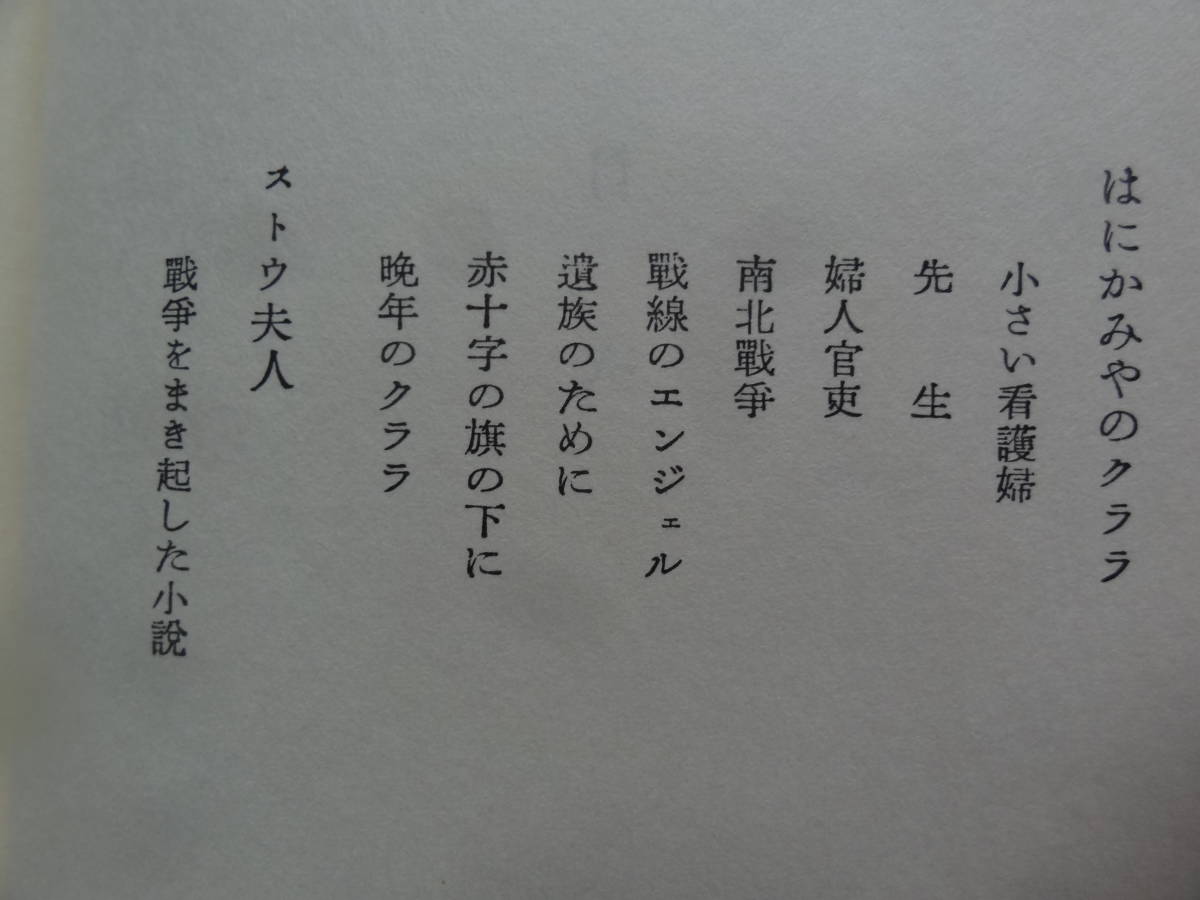 はにかみやのクララ
小さい看護婦
先生
婦人官吏
南北戰爭
戰線のエンジェル
遺族のために
赤十字の旗の下に
晩年のクララ
ストウ夫人
戰爭をまき起した小說